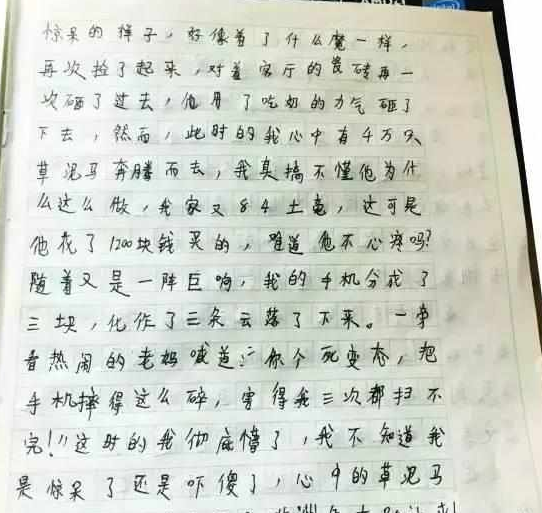 惊呆的样子，好像着了什么魔一样，
再次捡了起来，对着客厅的瓷砖再一
次砸了过去，他用了吃奶的力气砸了
下去，然而，此时的我心中有4万头
草泥马奔腾而去，我真搞不懂他为什
么这么做，我家又84土毫，这可是
他花了1200块钱买的，难道他不心疼吗?
随着又是一阵巨响，我的手机分成了
三块，化作了三朵云落了下来。一旁
看热闹的老妈喊道:"你个死变态，把
手机摔得这么碎，害得我三次都扫不
完!"这时的我彻底懵了，我不知道我
是惊呆了还是吓傻了，心中的草泥马